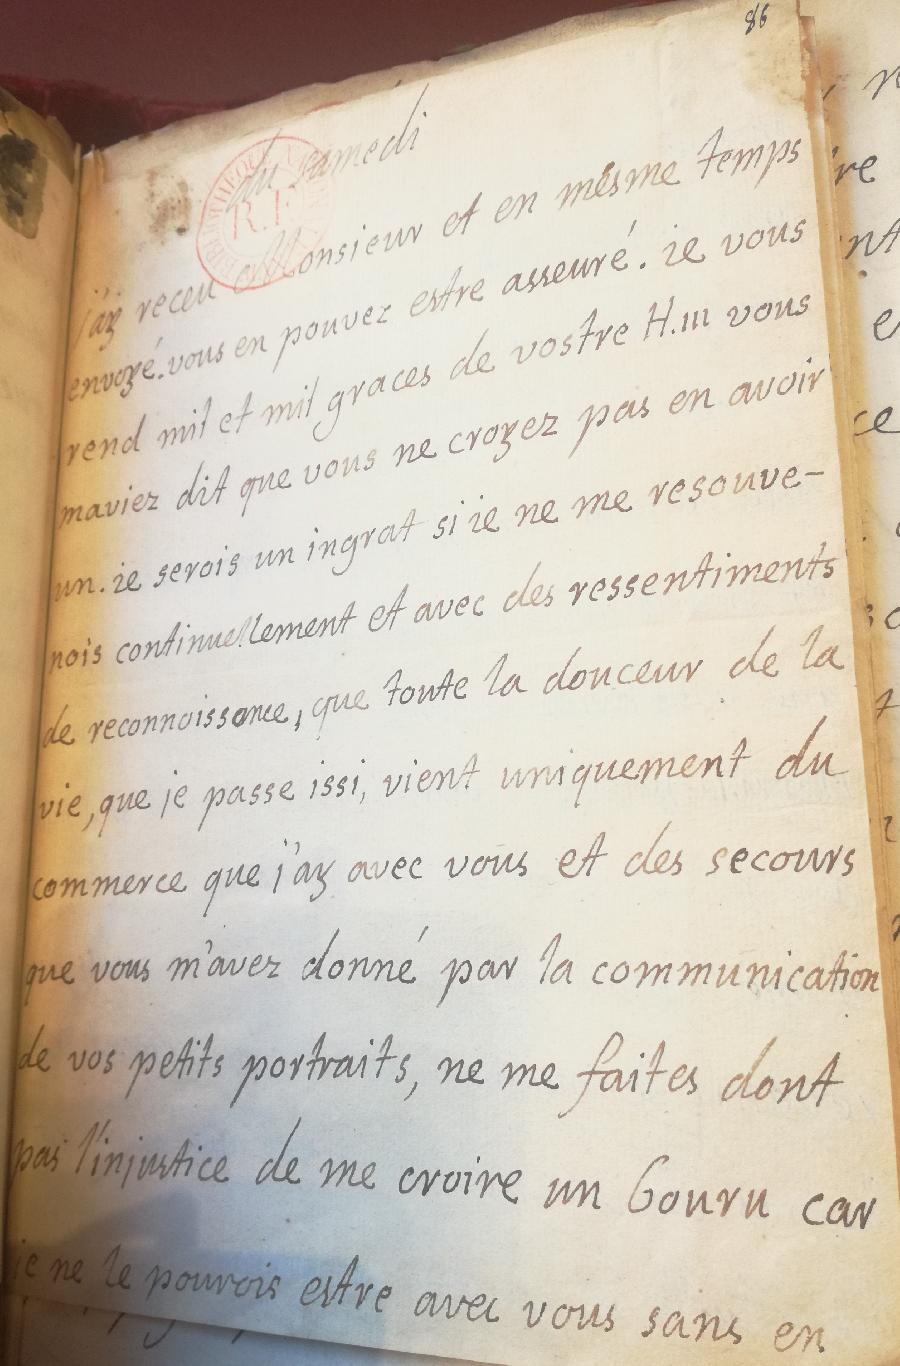 86
du samedi
j'ay receu Monsieur et en mesme temps
envoyé. vous en pouvez estre asseuré. ie vous
rend mil et mil graces de vostre H.III vous
maviez dit que vous ne croyez pas en avoir
un. ie serois un ingrat si ie ne me resouve-
nois continuellement et avec des ressentiments
de reconnoissance, que toute la douceur de la
vie, que je passe issi, vient uniquement du
commerce que j'ay avec vous et des secours
que vous m'avez donné par la communication
de vos petits portraits, ne me faites dont
pas l'injustice de me croire un Gouru car
je ne le pourois estre avec vous sans en
R.F.